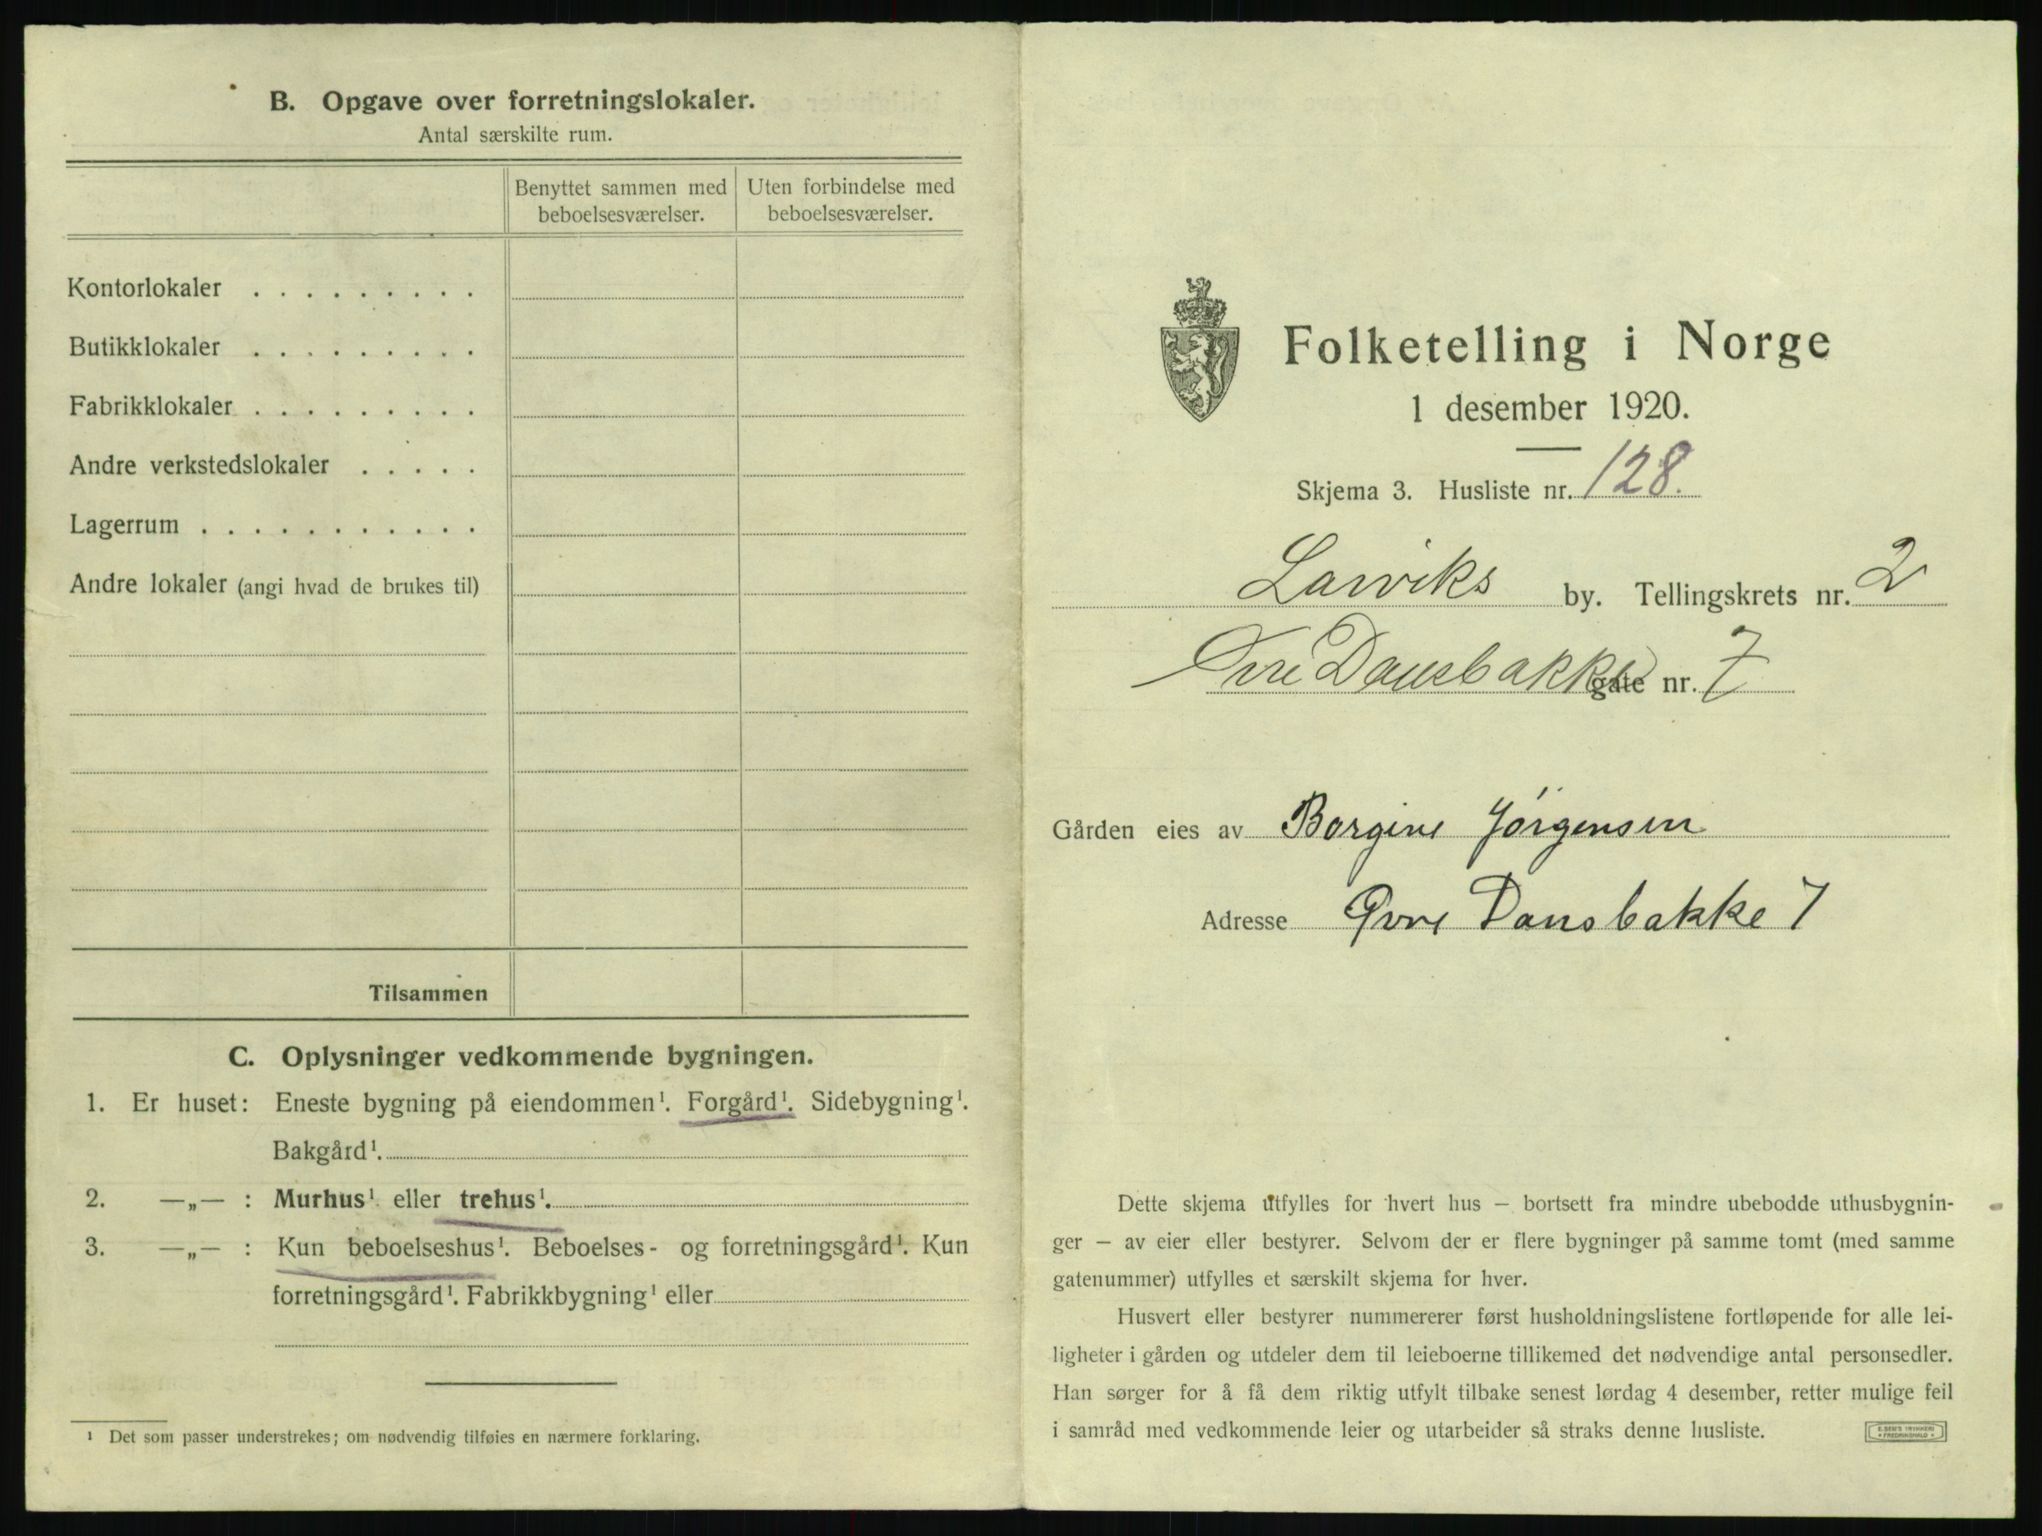 B. Opgave over forretningslokaler.
Antal særskilte rum.
Benyttet sammen med beboelsesværelser.
Uten forbindelse med beboelsesværelser.
Kontorlokaler . . . . . . . . .
Butikklokaler . . . . . . . . .
Fabrikklokaler . . . . . . . . .
Andre verkstedslokaler . . . . .
Lagerrum . . . . . . . . . . .
Andre lokaler (angi hvad de brukes til)
Tilsammen
C. Oplysninger vedkommende bygningen.
1. Er huset: Eneste bygning på eiendommen¹. Forgård¹. Sidebygning¹.
Bakgård¹.
2. —„— : Murhus¹ eller trehus¹.
3. —„— : Kun beboelseshus¹. Beboelses- og forretningsgård¹. Kun
forretningsgård¹. Fabrikkbygning¹ eller
¹ Det som passer understrekes; om nødvendig tilføies en nærmere forklaring.
Folketelling i Norge
1 desember 1920.
Skjema 3. Husliste nr. 128.
Larviks by. Tellingskrets nr. 2
Øvre Dansbakke gate nr. 7
Gården eies av Borgine Jörgensen
Adresse Øvre Dansbakke 7
Dette skjema utfylles for hvert hus — bortsett fra mindre ubebodde uthusbygnin-
ger — av eier eller bestyrer. Selvom der er flere bygninger på samme tomt (med samme
gatenummer) utfylles et særskilt skjema for hver.
Husvert eller bestyrer nummererer først husholdningslistene fortløpende for alle lei-
ligheter i gården og utdeler dem til leieboerne tillikemed det nødvendige antal personsedler.
Han sørger for å få dem riktig utfylt tilbake senest lørdag 4 desember, retter mulige feil
i samråd med vedkommende leier og utarbeider så straks denne husliste.
E. SEM'S TRYKKERI
FREDRIKSHALD